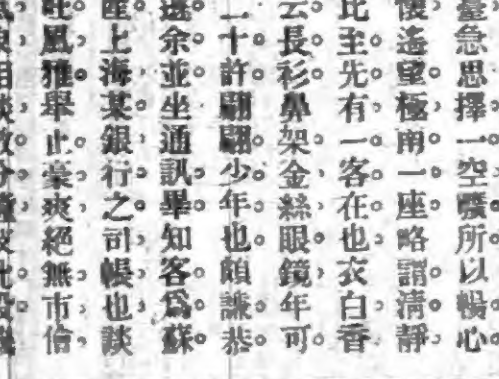 臺急思擇一空曠所以暢心
懷遙望極南一座略謂清靜
比至先有一客在也衣白香
云長衫鼻架金絲眼鏡年可
二十許翩翩少年也頗謙恭
遜余並坐通訊畢知客爲蘇
產上海某銀行之司帳也談
吐風雅舉止豪爽絕無市儈